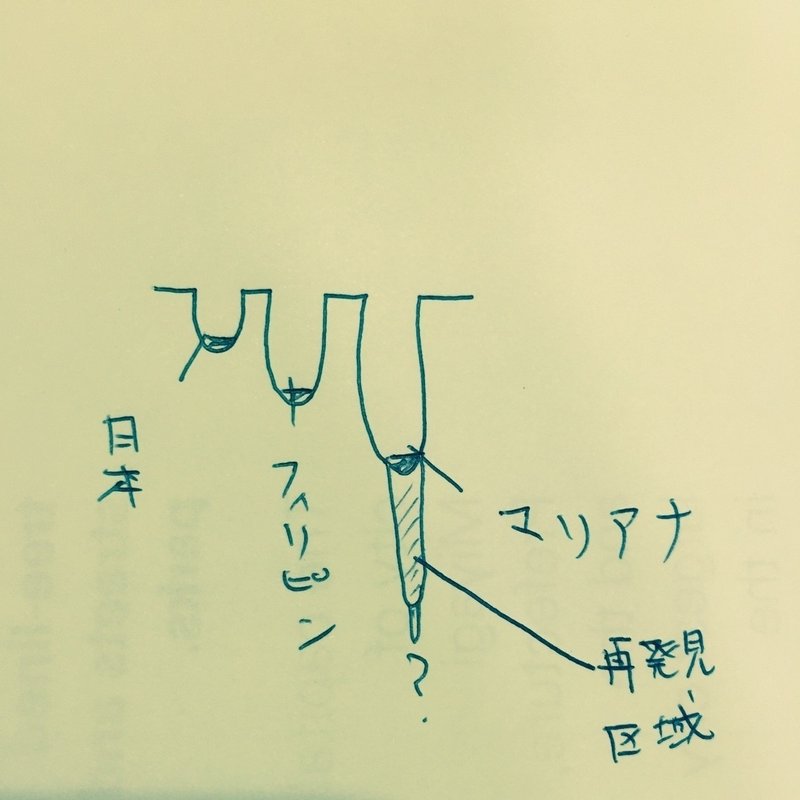 日本
フィリピン
マリアナ
再発見
区域
?